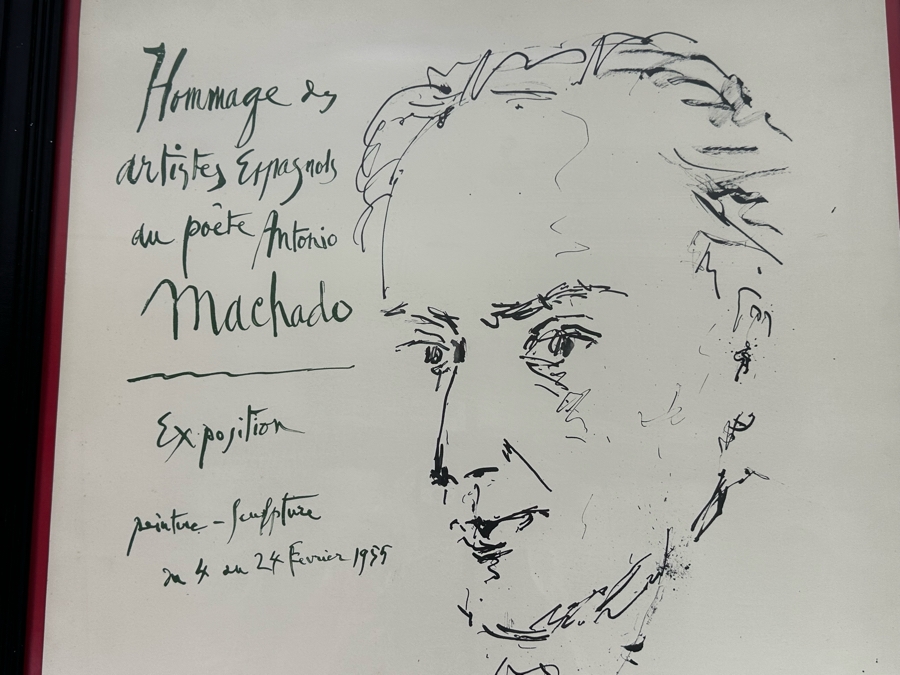 Hommage des
artistes Espagnols
au poète Antonio
Machado
Exposition
peinture - Sculpture
du 4 au 24 Février 1955